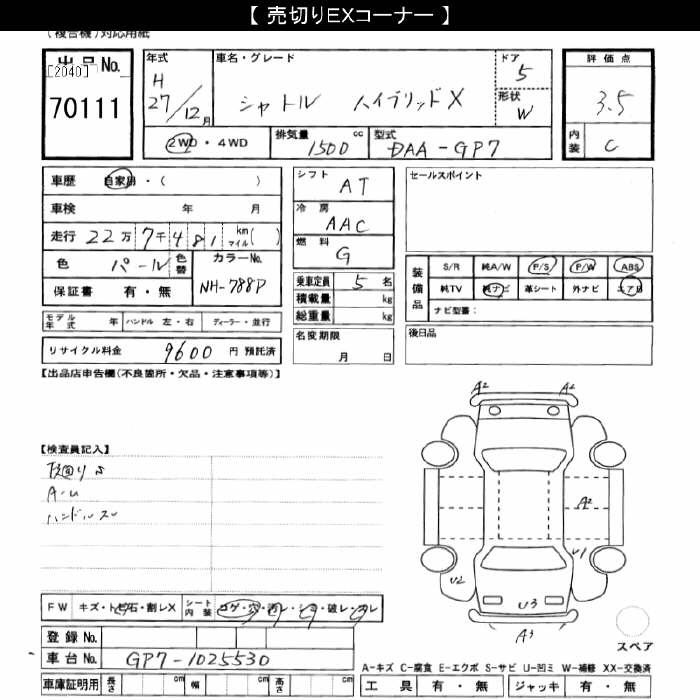 【 売切りEXコーナー 】
(複合機)対応用紙
出品No.
[2040]
70111
年式
H
27/12月
車名・グレード
シャトル ハイブリッドX
ドア
5
形状
W
評価点
3.5
内装
C
2WD・4WD
排気量
1500 cc
型式
DAA-GP7
車歴 自家用・( )
車検 年 月
走行 22万7千481 km マイル( )
色 パール 色替
カラーNo.
NH-788P
保証書 有・無
モデル年式 年 ハンドル 左・右 ディーラー・並行
リサイクル料金 9600 円 預託済
シフト
AT
冷房
AAC
燃料
G
乗車定員 5 名
積載量 kg
総重量 kg
名変期限
月 日
セールスポイント
装備品
S/R 純A/W P/S P/W ABS
純TV 純ナビ 革シート 外ナビ エアB
ナビ型番:
後日品
【出品店申告欄(不良箇所・欠品・注意事項等)】
【検査員記入】
下回りS
A-U
ハンドルスレ
A2 A2
A2
U1
U2
U3
A3
スペア
FW キズ・トビ石・割レX シート内装 コゲ・穴・汚レ・シミ・破レ・スレ
登録No.
車台No. GP7-1025530
車庫証明用 長さ cm 幅 cm 高さ cm
A-キズ C-腐食 E-エクボ S-サビ U-凹ミ W-補修 XX-交換済
工具 有・無 ジャッキ 有・無